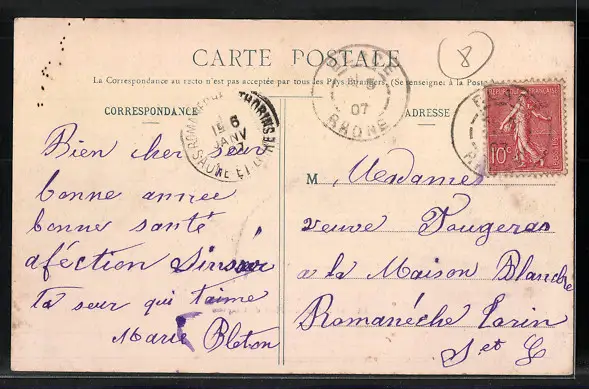 CARTE POSTALE
8
La Correspondance au recto n'est pas acceptée par tous les Pays Étrangers. (Se renseigner à la Poste
CORRESPONDANCE
ADRESSE
ROMANÈCHE-THORINS
6
JANV
07
SAÔNE ET L
07
RHONE
RÉPUBLIQUE FRANÇAISE
10c
Bien cher seur
bonne année
bonne santé
aféction
ta seur qui t'aime
Marie Bleton
M Mesdames
veuve
a la Maison Blanche
Romanéche Torin
S et L